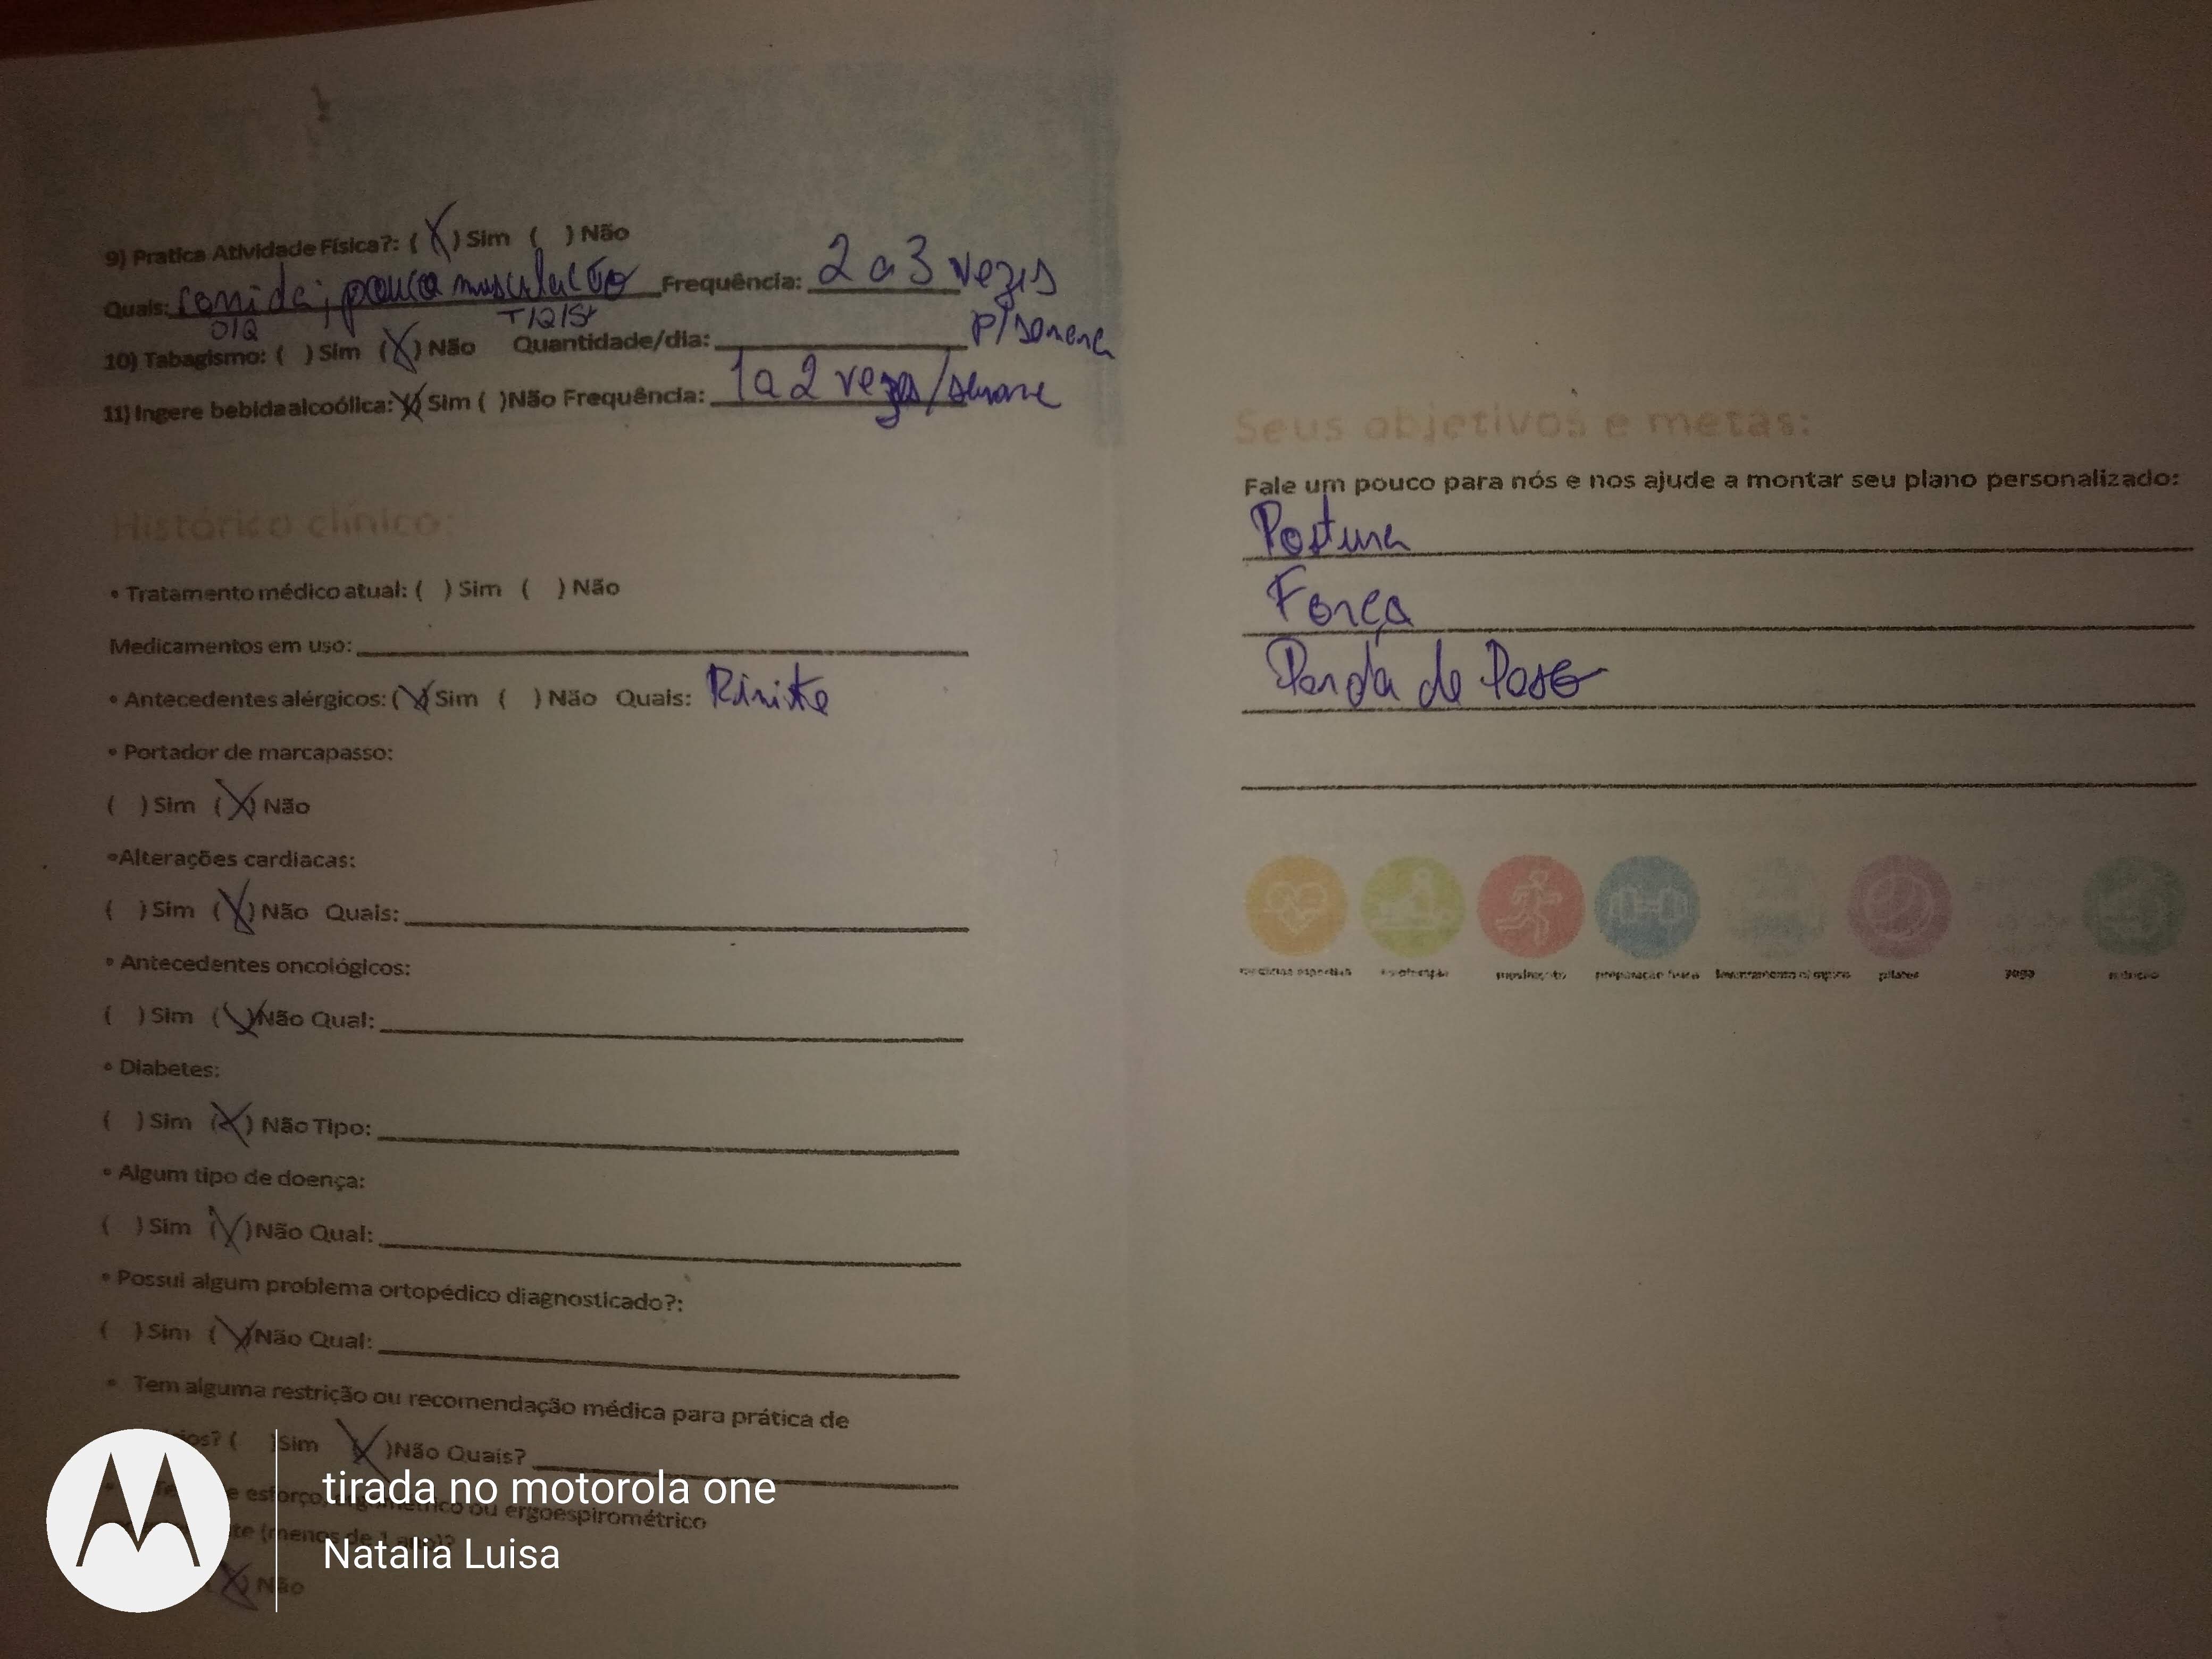 9) Pratica Atividade Física?: (X) Sim ( ) Não
Quais: corrida; pouca musculação Frequência: 2 a 3 vezes
D/Q T/Q/S p/semana
10) Tabagismo: ( ) Sim (X) Não Quantidade/dia:
11) Ingere bebida alcoólica: (X) Sim ( ) Não Frequência: 1 a 2 vezes/semana
Histórico clínico:
• Tratamento médico atual: ( ) Sim ( ) Não
Medicamentos em uso:
• Antecedentes alérgicos: (X) Sim ( ) Não Quais: Rinite
• Portador de marcapasso:
( ) Sim (X) Não
•Alterações cardíacas:
( ) Sim (X) Não Quais:
• Antecedentes oncológicos:
( ) Sim (X) Não Qual:
• Diabetes:
( ) Sim (X) Não Tipo:
• Algum tipo de doença:
( ) Sim (X) Não Qual:
• Possui algum problema ortopédico diagnosticado?:
( ) Sim (X) Não Qual:
• Tem alguma restrição ou recomendação médica para prática de
? ( ) Sim (X) Não Quais?
esforço ou ergoespirométrico
(menos de 1 ano)?
(X) Não
Seus objetivos e metas:
Fale um pouco para nós e nos ajude a montar seu plano personalizado:
Postura
Força
Perda de Peso
medicina esportiva fisioterapia preparação física levantamento olímpico pilates yoga nutrição
tirada no motorola one
Natalia Luisa